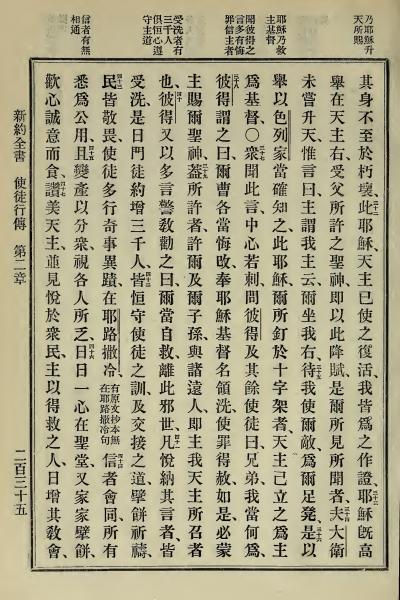 乃耶穌升天所賜
耶穌乃救主基督
聞彼得之言多有悔罪信主者
受洗者有三千人俱恒心遵守主道
信者有無相通
其身不至於朽壞、三十二此耶穌、天主已使之復活、我皆爲之作證、三十三耶穌旣高
舉在天主右、受父所許之聖神、即以此降賦、是爾所見所聞者、三十四夫大衛
未嘗升天、惟言曰、主謂我主云、爾坐我右、三十五待我使爾敵爲爾足凳、三十六是以
舉以色列家當確知之、此耶穌、爾所釘於十字架者、天主已立之爲主
爲基督、〇三十七衆聞此言、中心若刺、問彼得及其餘使徒曰、兄弟、我當何爲、
三十八彼得謂之曰、爾曹各當悔改、奉耶穌基督名領洗、使罪得赦、如是、必蒙
主賜爾聖神、三十九蓋所許者、許爾、及爾子孫、與諸遠人、即主我天主所召者
也、四十彼得又以多言警敎勸之曰、爾當自救、離此邪世、四十一凡悅納其言者、皆
受洗、是日門徒約增三千人、四十二皆恒守使徒之訓、及交接之道、擘餅祈禱、
四十三民皆敬畏、使徒多行奇事異蹟、在耶路撒冷、有原文抄本無在耶路撒冷句四十四信者會同、所有
悉爲公用、四十五且變產以分衆、視各人所乏、四十六日日一心在聖堂、又家家擘餅、
歡心誠意而食、四十七讚美天主、並見悅於衆民、主以得救之人、日增其敎會、
新約全書 使徒行傳 第二章 二百三十五